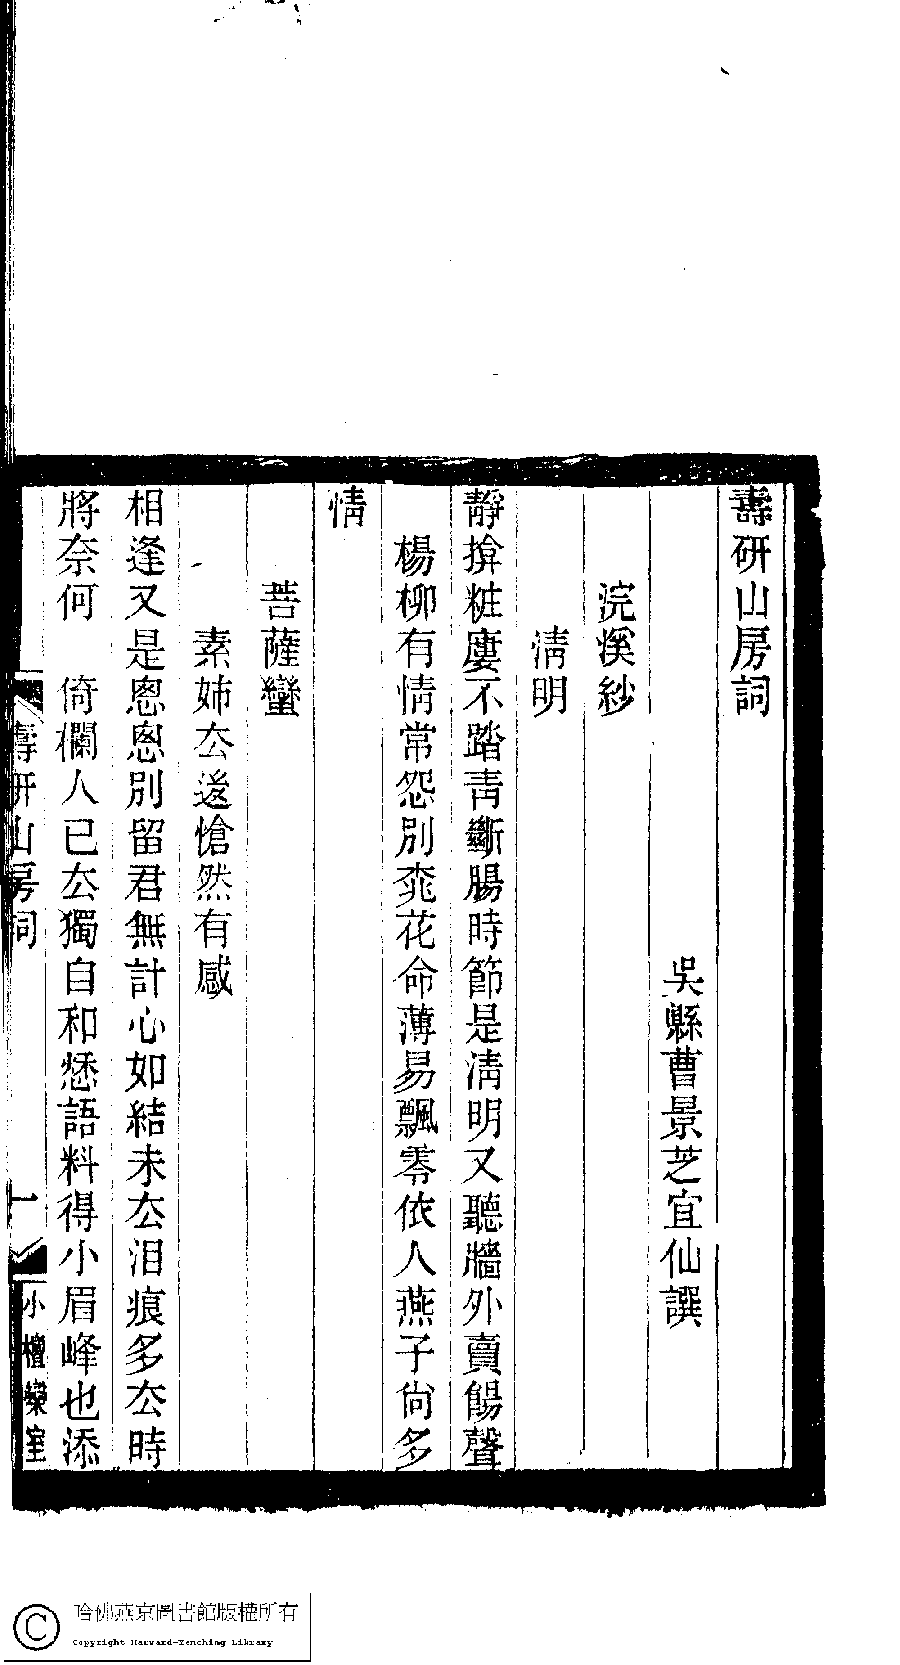 壽研山房詞
吳縣曹景芝宜仙譔
浣溪紗
淸明
靜揜粧廔不踏靑斷腸時節是淸明又聽牆外賣餳聲
楊柳有情常怨別桃花命薄易飄零依人燕子尙多
情
菩薩蠻
素姊厺後愴然有感
相逢又是悤悤別留君無計心如結未厺淚痕多厺時
將奈何　倚欄人已厺獨自和愁語料得小眉峰也添
壽研山房詞
一
小檀欒室
哈佛燕京圖書館版權所有
Copyright Harvard-Yenching Library